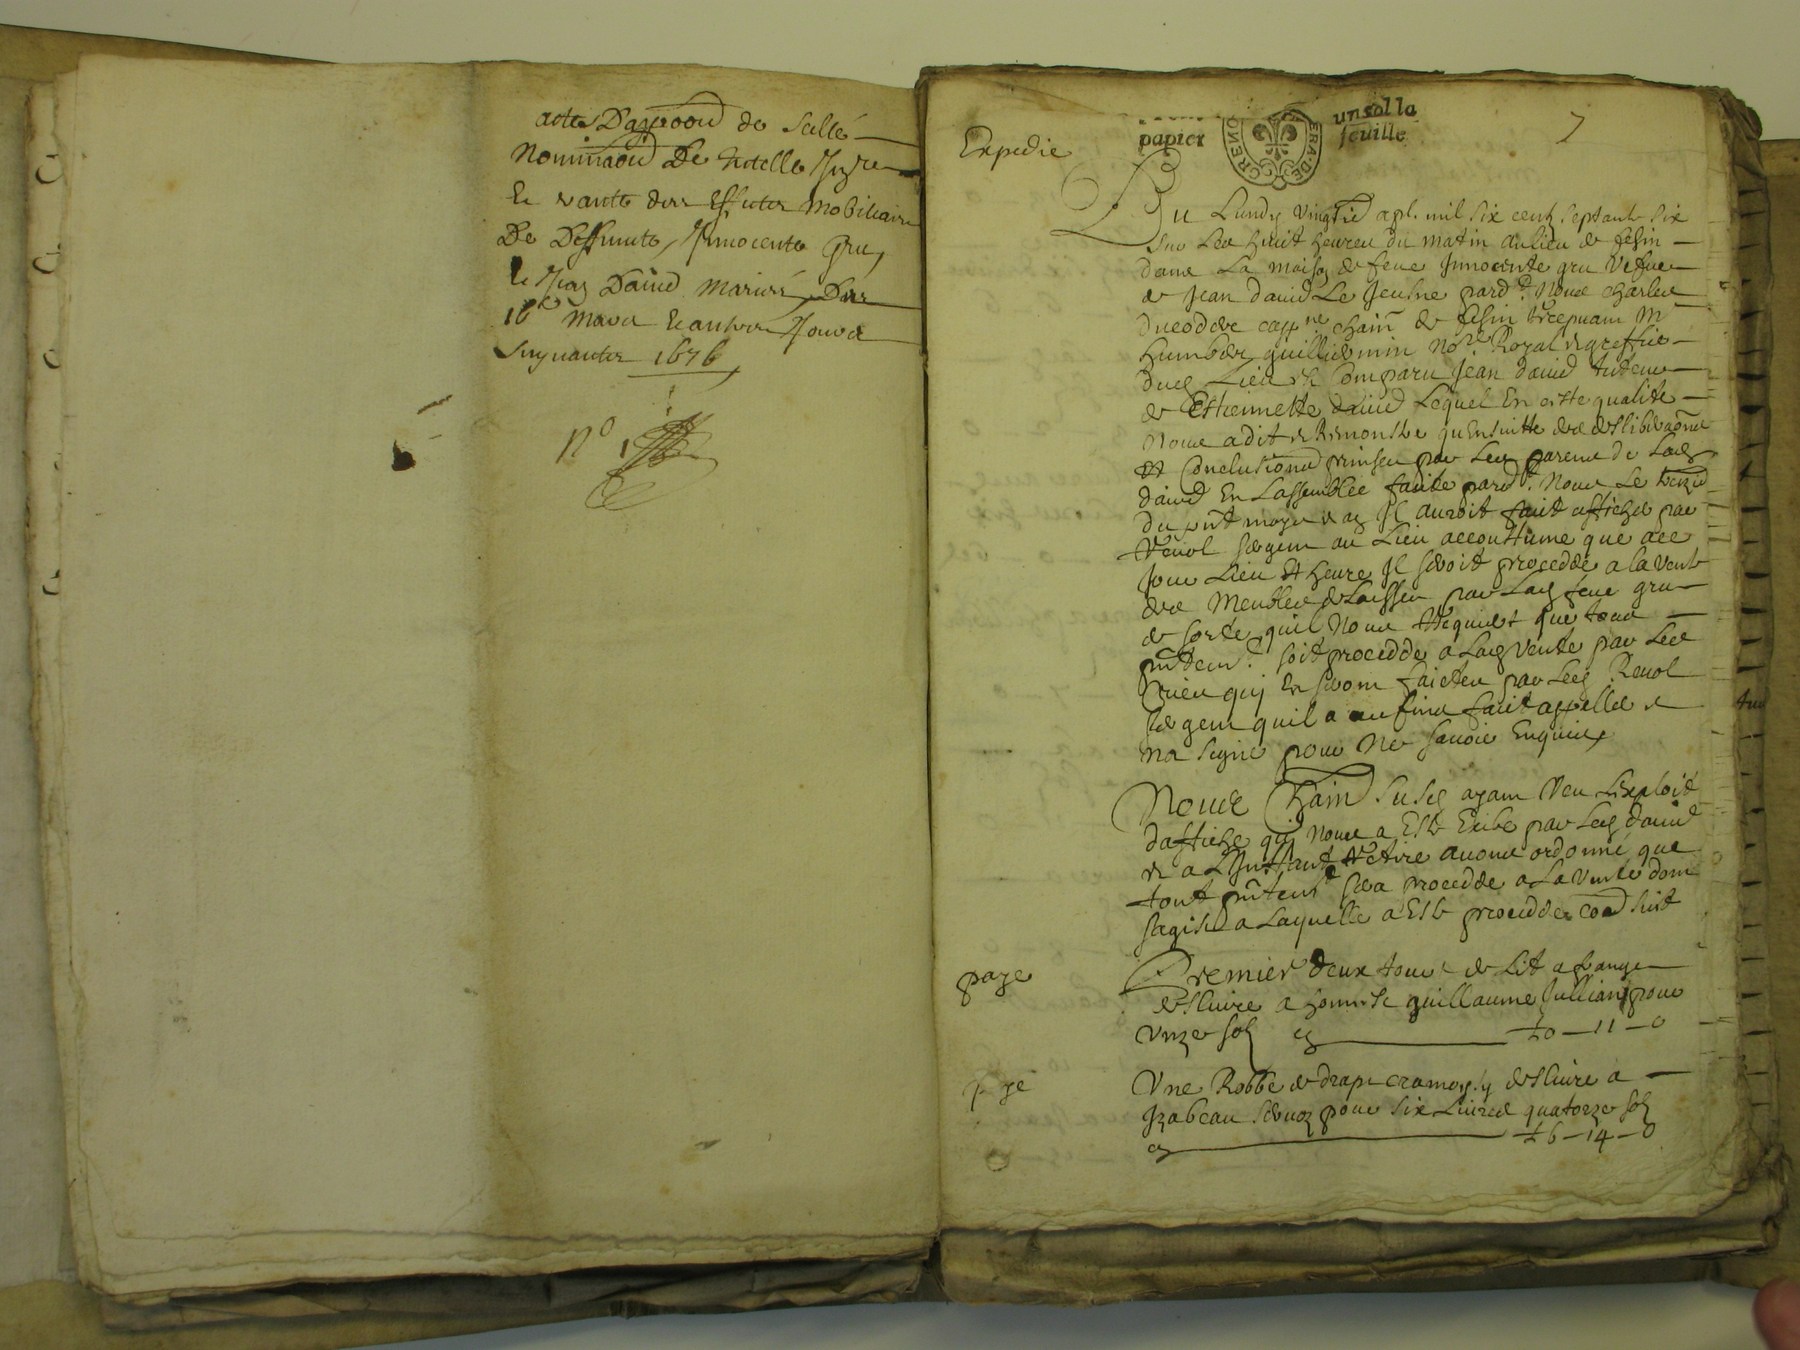 acte D'apposõn de scellé
Nominaõn De tutelle Inv.re
Et vante des Effectes Mobiliaire
De Deffunte, Innocente Gru,
et Jean David Mariés, Des
16e Mars et autres Jours
Suyvantes 1676
N° 1
Expedie
papier
un sol la
feuille
7
Du Lundy vingtié apl. mil six centz septante six
sur Les huict heures du matin au lieu de
dans La maison de feue Innocente gru Vefve
de Jean david Le Jeusne pard.t Nous charles
chain de M
humbert guilliermin No.re Royal et greffier
dud Lieu Est Comparu Jean david tuteur
de Estiennette david Lequel En ceste qualite
Nous a dit et Remonstre qu'Ensuitte des deslibera͠ons
et Conclusions prinses par Les parens de Lad
david En Lassemblee faite pard.t Nous Le
du p͠nt moys et an Il auroit fait afficher par
Revol sergent au Lieu accoustume que a ce
Jour Lieu Et heure Il seroit procedde a la vente
des Meubles delaisses par Lad feue gru
de sorte quil Nous Requiert que tout
p͠ntem.t soit procedde a Lad vente par Les
Cries quj En seront faictes par Led Revol
sergent quil a au fins fait appeller et
na signe pour Ne scavoir Enquis
Nous Chain susd ayant Veu Lexploit
daffiche quj Nous a Este Exibe par Led david
et a Linstant Retire avons ordonne que
tout p͠ntem.t sera procedde a La vente dont
sagist a Laquelle a Este procedde co͠e suit
paye
Premier deux tours de Lit a frange
deslivre a honneste guillaume Jullian pour
Unze solz cy £0 — 11 — 0
p ye
Une Robbe de drap cramoysy deslivre a
Izabeau pour six Livres quatorze solz
cy £6 — 14 — 0